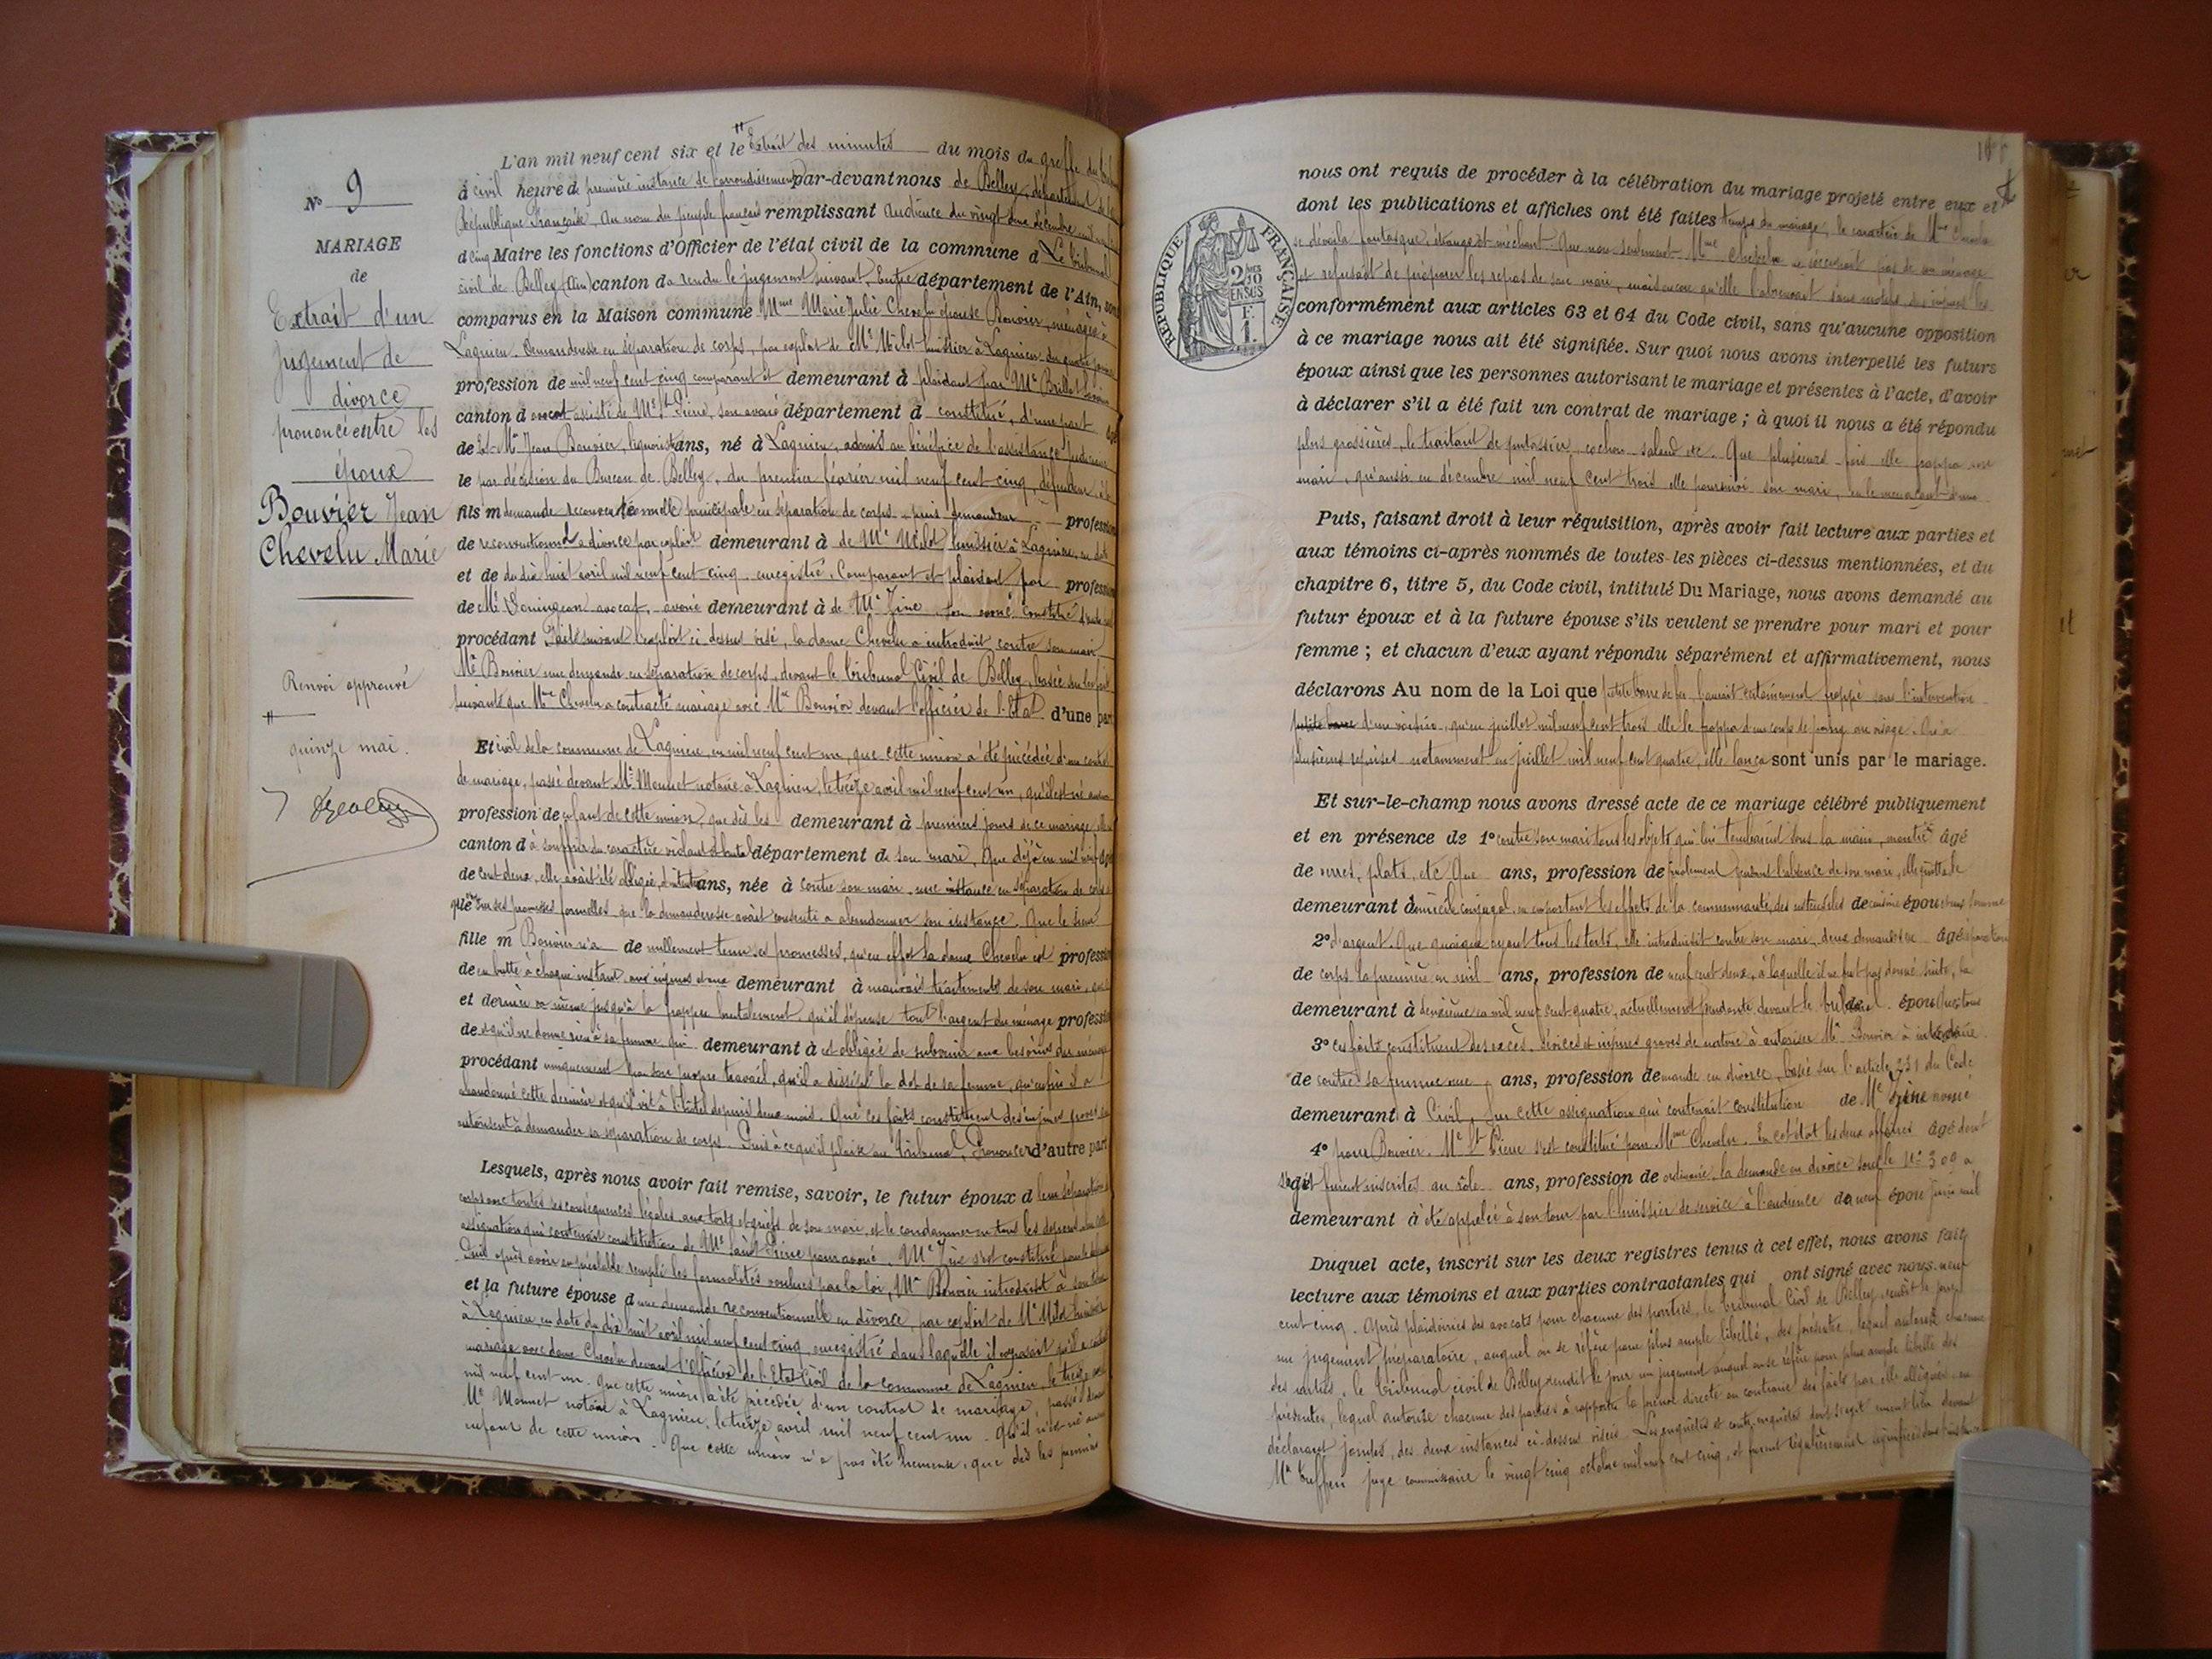 Nº 9
MARIAGE
de
Extrait d'un
jugement de
divorce
prononcé entre les
époux
Bouvier Jean
Chevelu Marie
Renvoi approuvé
quinze mai.
L'an mil neuf cent six et le Extrait des minutes du mois du greffe du
à civil heure de première instance de l'arrondissement par-devant nous de Belley, département de
République Française, Au nom du peuple français remplissant Audience du vingt deux décembre
d cinq Maire les fonctions d'Officier de l'état civil de la commune d Le tribunal
civil de Belley (Ain) canton d a rendu le jugement suivant. Entre département de l'Ain, sont
comparus en la Maison commune Mme Marie Julie Chevelu épouse Bouvier, ménagère à
Lagnieu. Demanderesse en séparation de corps, par exploit de Me Milot huissier à Lagnieu du quatre
profession de mil neuf cent cinq comparant et demeurant à plaidant par Me Brillat
canton d avocat assisté de Me St Pierre, son avoué département d constitué, d'une part
de Et Mr Jean Bouvier, liquoriste ans, né à Lagnieu, admis au bénéfice de l'assistance judiciaire
le par décision du Bureau de Belley, du premier février mil neuf cent cinq, défendeur
fils m demande reconventionnelle principale en séparation de corps puis demandeur profession
de reconventionnel divorce par exploit demeurant à de Me Milot huissier à Lagnieu, en date
et de du dix huit avril mil neuf cent cinq, enregistré. Comparant et plaidant par profession
de Me avocat, avoué demeurant à de Me son avoué constitué
procédant Faits suivant l'exploit ci-dessus visé, la dame Chevelu a introduit contre son mari
Mr Bouvier une demande en séparation de corps, devant le tribunal Civil de Belley, basée sur les faits
suivants que Mme Chevelu a contracté mariage avec Mr Bouvier devant l'officier de l'Etat d'une part
Et civil de la commune de Lagnieu, en mil neuf cent un, que cette union a été précédée d'un contrat
de mariage, passé devant Me Monnet notaire à Lagnieu, le treize avril mil neuf cent un, qu'il est né aucun
profession de enfant de cette union, que dès les demeurant à premiers jours de ce mariage elle
canton d à souffrir du caractère violent et brutal département d de son mari, Que déjà en mil neuf
de cent deux, elle avait été obligée d'intenter ans, née à contre son mari une instance en séparation de corps
le sur ses promesses formelles que la demanderesse avait consenti à abandonner son instance. Que le sieur
fille m Bouvier n'a de nullement tenu ses promesses, qu'en effet la dame Chevelu est profession
de en butte à chaque instant aux injures et aux demeurant à mauvais traitements de son mari, que
et dernier va même jusqu'à la frapper brutalement, qu'il dépense tout l'argent du ménage profession
de et qu'il ne donne rien à sa femme qui demeurant à est obligée de subvenir aux besoins du ménage
procédant uniquement par son propre travail, qu'il a dissipé la dot de sa femme, qu'enfin il a
abandonné cette dernière et qu'il vit à l'hôtel depuis deux mois. Que ces faits constituent des injures graves
autorisent à demander sa séparation de corps. Puis à ce qu'il plaise au Tribunal, Prononcer d'autre part
Lesquels, après nous avoir fait remise, savoir, le futur époux d leur séparation
corps avec toutes ses conséquences légales aux torts et griefs de son mari, et le condamner en tous les dépens
assignation qui contenait constitution de Me Saint Pierre pour avoué. Me s'est constitué pour
Puis après avoir au préalable rempli les formalités voulues par la loi, Mr Bouvier introduisit à son tour
et la future épouse d une demande reconventionnelle en divorce, par exploit de Me Milot huissier
à Lagnieu, en date du dix huit avril mil neuf cent cinq, enregistré dans laquelle il exposait qu'il a contracté
mariage avec dame Chevelu devant l'Officier de l'Etat Civil de la commune de Lagnieu, le treize
mil neuf cent un. Que cette union a été précédée d'un contrat de mariage, passé devant
Me Monnet notaire à Lagnieu, le treize avril mil neuf cent un. Qu'il n'est né aucun
enfant de cette union. Que cette union n'a pas été heureuse, que dès les premiers
nous ont requis de procéder à la célébration du mariage projeté entre eux et
dont les publications et affiches ont été faites temps du mariage, le caractère de Mme Chevelu
se dévoila fantasque, étrange et méchant. Que non seulement Mme Chevelu ne s'occupait pas de son ménage
et refusait de préparer les repas de son mari, mais encore qu'elle l'abreuvait sans motifs des injures les
RÉPUBLIQUE FRANÇAISE
conformément aux articles 63 et 64 du Code civil, sans qu'aucune opposition
à ce mariage nous ait été signifiée. Sur quoi nous avons interpellé les futurs
époux ainsi que les personnes autorisant le mariage et présentes à l'acte, d'avoir
à déclarer s'il a été fait un contrat de mariage ; à quoi il nous a été répondu
plus grossières, le traitant de putassier, cochon, salaud etc. Que plusieurs fois elle frappa son
mari, qu'aussi en décembre mil neuf cent trois elle poursuivi son mari, en le menaçant d'une
Puis, faisant droit à leur réquisition, après avoir fait lecture aux parties et
aux témoins ci-après nommés de toutes les pièces ci-dessus mentionnées, et du
chapitre 6, titre 5, du Code civil, intitulé Du Mariage, nous avons demandé au
futur époux et à la future épouse s'ils veulent se prendre pour mari et pour
femme ; et chacun d'eux ayant répondu séparément et affirmativement, nous
déclarons Au nom de la Loi que petite barre de fer l'aurait certainement frappé sans l'intervention
d'une voisine, qu'en juillet mil neuf cent trois elle le frappa d'un coup de poing au visage. Qu'à
plusieurs reprises notamment en juillet mil neuf cent quatre, elle lança sont unis par le mariage.
Et sur-le-champ nous avons dressé acte de ce mariage célébré publiquement
et en présence de 1º contre son mari tous les objets qui lui tombaient sous la main, âgé
de verres, plats, etc. Que ans, profession de finalement pendant l'absence de son mari, elle quitta le
demeurant à domicile conjugal, en emportant les effets de la communauté, des ustensiles de cuisine épou
2º d'argent. Que quoique ayant tous les torts, elle introduisit contre son mari, deux demandes en âgé séparation
de corps la première en mil ans, profession de neuf cent deux, à laquelle il ne fut pas donné suite, la
demeurant à deuxième en mil neuf cent quatre, actuellement pendante devant le tribunal. épou Que tous
3º ces faits constituent des excès, sévices et injures graves de nature à autoriser Mr Bouvier à introduire
de contre sa femme une ans, profession demande en divorce, basée sur l'article 231 du Code
demeurant à Civil, Sur cette assignation qui contenait constitution de Me avoué
4º pour Bouvier. Me St Pierre s'est constitué pour Mme Chevelu. En cet état les deux affaires âgé dont
s'agit furent inscrites au rôle ans, profession de ordinaire, la demande en divorce sous le Nº 300 a
demeurant à été appelée à son tour par l'huissier de service à l'audience de neuf épou juin mil
Duquel acte, inscrit sur les deux registres tenus à cet effet, nous avons fait
lecture aux témoins et aux parties contractantes qui ont signé avec nous. neuf
cent cinq. Après plaidoiries des avocats pour chacune des parties, le tribunal Civil de Belley, rendit le jour
un jugement préparatoire, auquel on se réfère pour plus ample libellé, des présentes, lequel autorise chacune
des parties, le tribunal civil de Belley rendit le jour un jugement auquel on se réfère pour plus ample libellé des
présentes, lequel autorise chacune des parties à rapporter la preuve directe ou contraire des faits par elle allégués, en
déclarant jointes, des deux instances ci-dessus visées. Les enquêtes et contr-enquêtes dont s'agit eurent lieu devant
Mr juge commissaire le vingt cinq octobre mil neuf cent cinq, et furent régulièrement signifiées